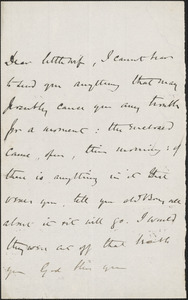 Dear little wife, I cannot bear
to send you anything that may
possibly cause you any trouble
for a moment: the enclosed
came, open, this morning & if
there is anything in it that
vexes you, tell your old Boy all
about it & it will go. I would
 off that
you God bless you